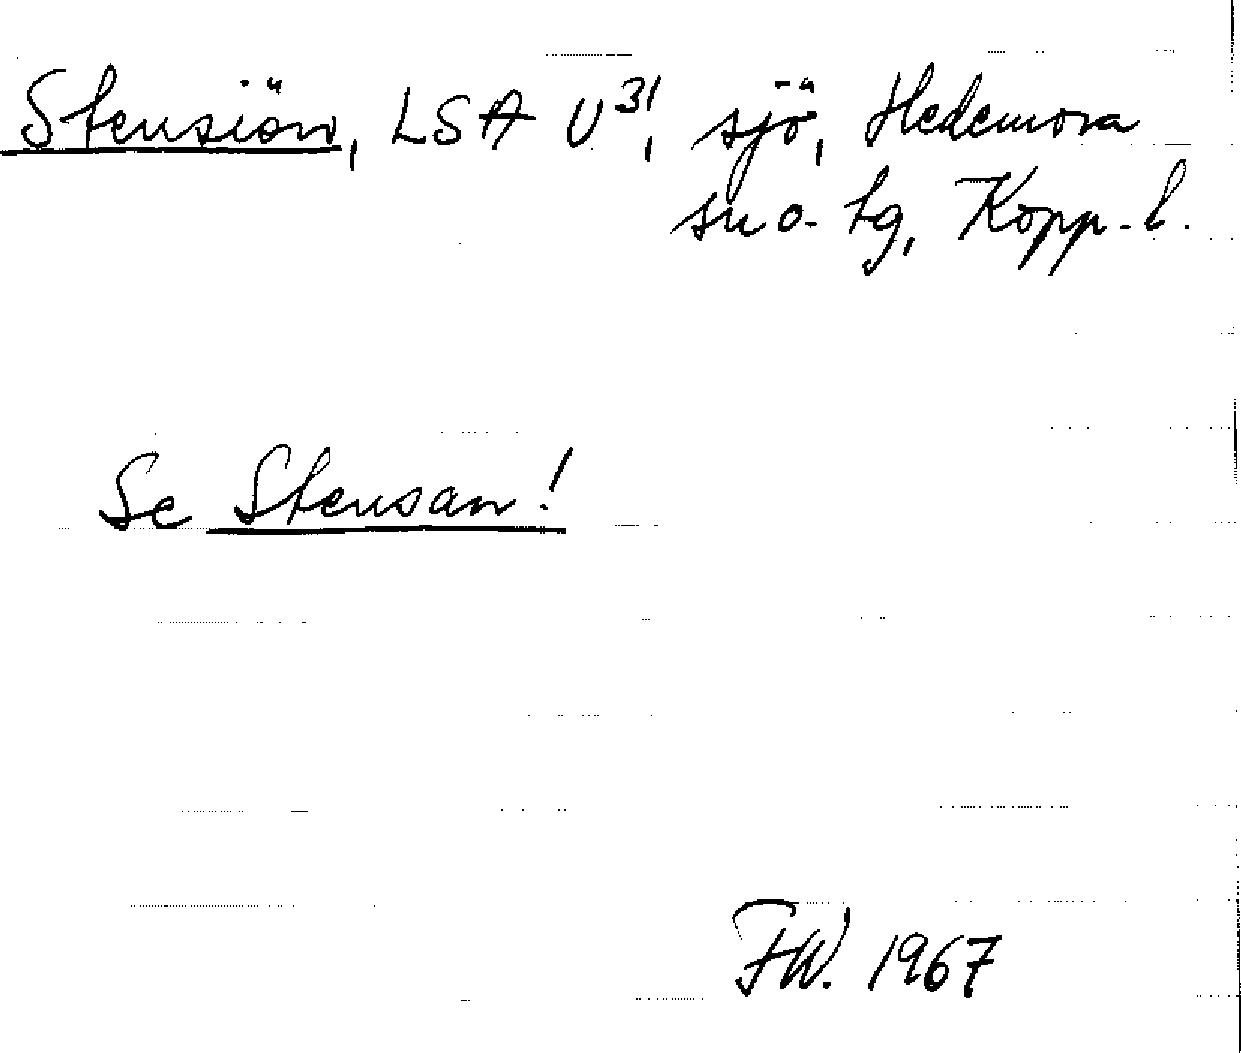 Stensiön, LSA U³¹, sjö, Hedemora
sn o. tg, Kopp. l.
Se Stensan!
FW. 1967